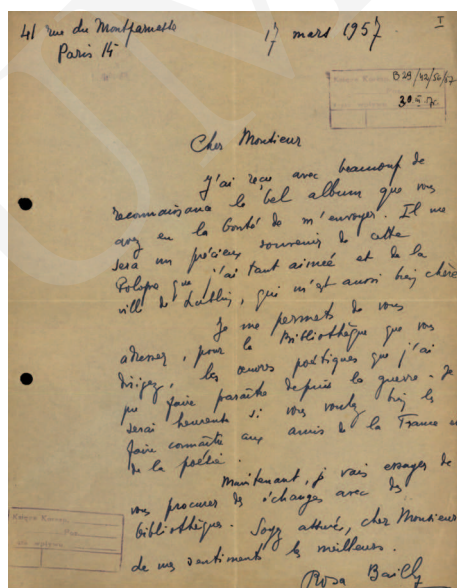 41 rue du Montparnasse
Paris 14
17 mars 1957
I
B 29/42/56/57
Cher Monsieur
J'ai reçu avec beaucoup de
reconnaissance le bel album que vous
avez eu la bonté de m'envoyer. Il me
sera un précieux souvenir de cette
Pologne que j'ai tant aimée et de la
ville de Lublin, qui m'est aussi bien chère
Je me permets de vous
adresser, pour la Bibliothèque que vous
dirigez, les œuvres poétiques que j'ai
pu faire paraître depuis la guerre. Je
serai heureuse si vous voulez bien les
faire connaître aux amis de la France et
de la poésie.
Maintenant, je vais essayer de
vous procurer des échanges avec des
bibliothèques. Soyez assuré, cher Monsieur
de mes sentiments les meilleurs.
Rosa Bailly